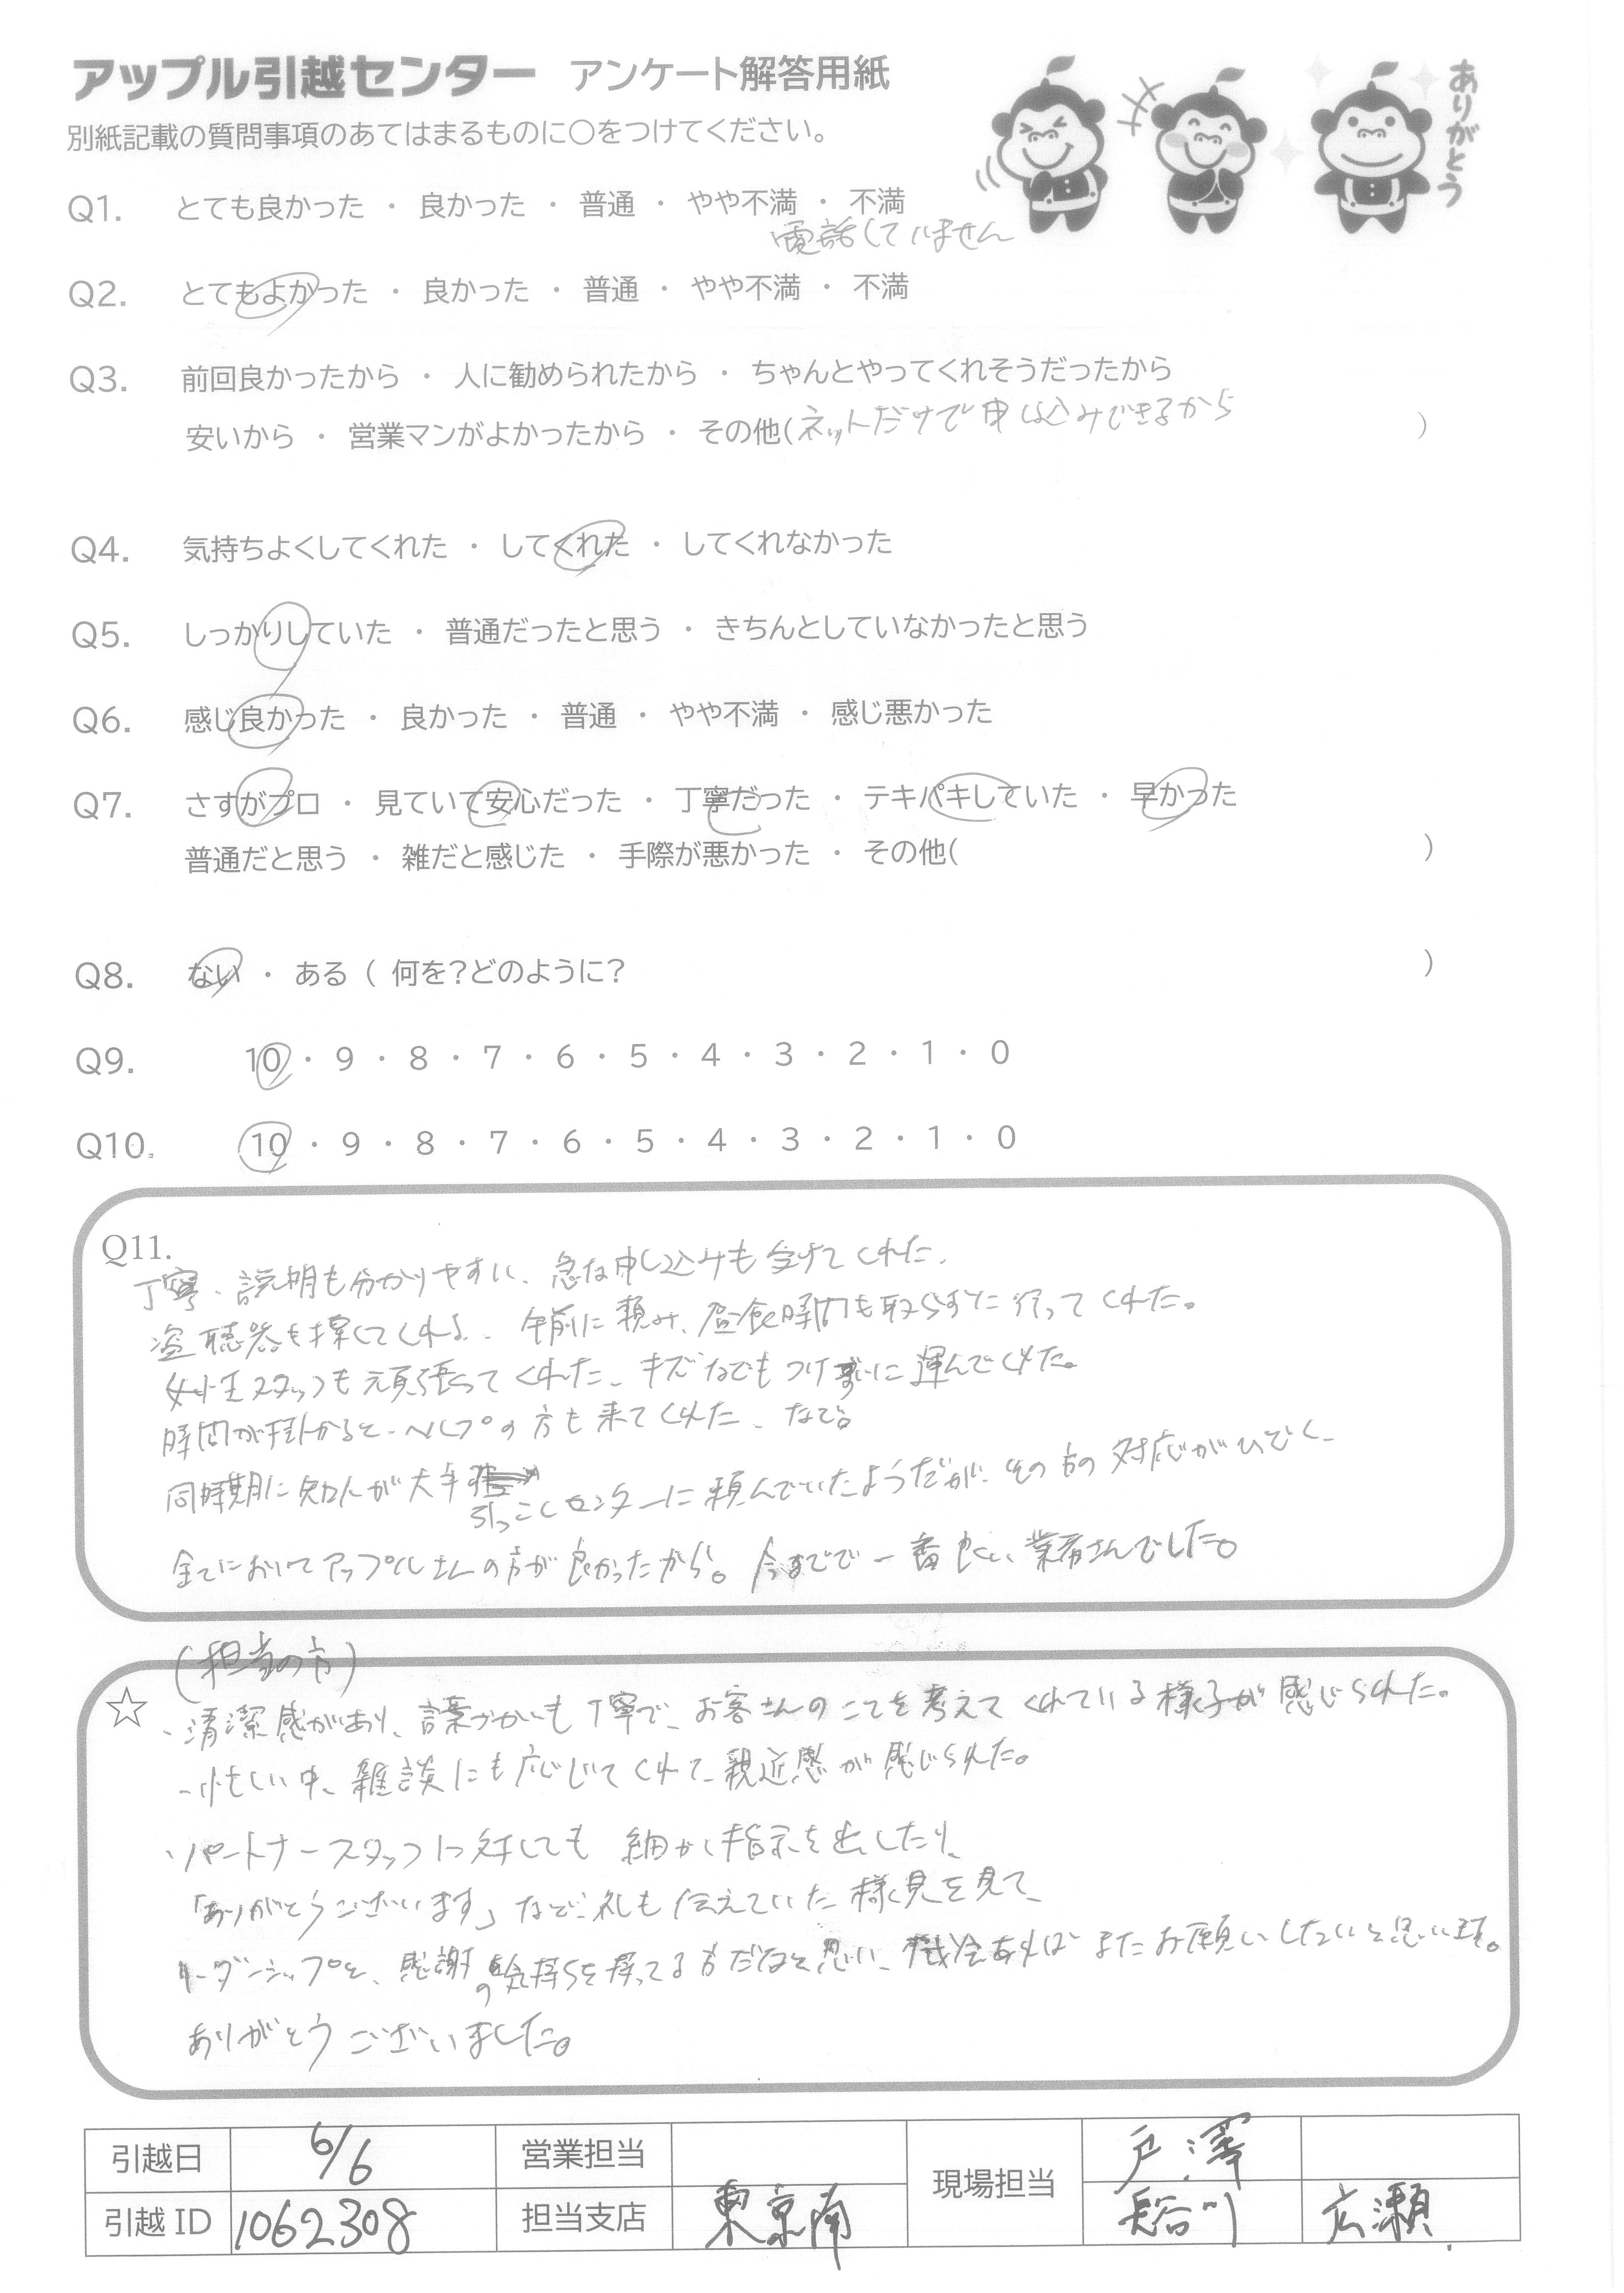 アップル引越センター アンケート解答用紙
ありがとう
別紙記載の質問事項のあてはまるものに○をつけてください。
Q1. とても良かった ・ 良かった ・ 普通 ・ やや不満 ・ 不満
電話していません
Q2. とてもよかった ・ 良かった ・ 普通 ・ やや不満 ・ 不満
Q3. 前回良かったから ・ 人に勧められたから ・ ちゃんとやってくれそうだったから
安いから ・ 営業マンがよかったから ・ その他(ネットだけで申し込みできるから )
Q4. 気持ちよくしてくれた ・ してくれた ・ してくれなかった
Q5. しっかりしていた ・ 普通だったと思う ・ きちんとしていなかったと思う
Q6. 感じ良かった ・ 良かった ・ 普通 ・ やや不満 ・ 感じ悪かった
Q7. さすがプロ ・ 見ていて安心だった ・ 丁寧だった ・ テキパキしていた ・ 早かった
普通だと思う ・ 雑だと感じた ・ 手際が悪かった ・ その他( )
Q8. ない ・ ある ( 何を?どのように? )
Q9. 10 ・ 9 ・ 8 ・ 7 ・ 6 ・ 5 ・ 4 ・ 3 ・ 2 ・ 1 ・ 0
Q10. 10 ・ 9 ・ 8 ・ 7 ・ 6 ・ 5 ・ 4 ・ 3 ・ 2 ・ 1 ・ 0
Q11.
丁寧、説明も分かりやすい、急な申し込みも受けてくれた、
盗聴器も探してくれる、午前に頼み、昼食時間も取らずに行ってくれた。
女性スタッフも頑張ってくれた、キズなどもつけずに運んでくれた。
時間が掛かると、ヘルプの方も来てくれた、など。
同時期に知人が大手引っこしセンターに頼んでいたようだが、その方の対応がひどく、
全てにおいてアップルさんの方が良かったから。今までで一番良い業者さんでした。
(担当の方)
☆
・清潔感があり、言葉づかいも丁寧で、お客さんのことを考えてくれている様子が感じられた。
・忙しい中、雑談にも応じてくれて、親近感が感じられた。
・パートナースタッフに対しても細かく指示を出したり、
「ありがとうございます」などお礼も伝えていた様見を見て、
リーダーシップと、感謝の気持ちを持ってる方だなと思い、機会あればまたお願いしたいと思います。
ありがとうございました。
引越日 6/6 営業担当 現場担当 戸澤
引越 ID 1062308 担当支店 東京南 長谷川 広瀬